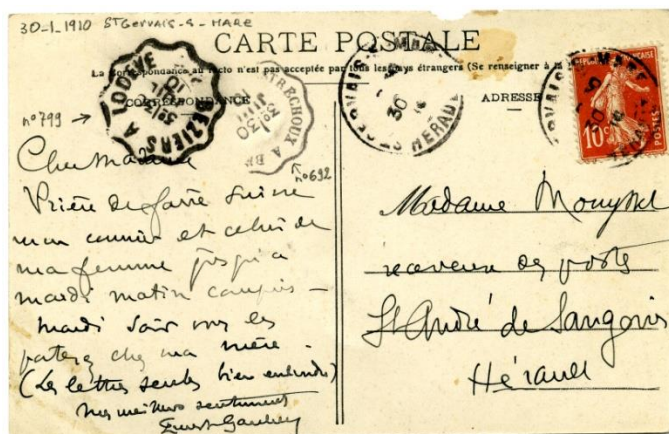 30-1.1910 St GERVAIS-S-MARE
CARTE POSTALE
La Correspondance au recto n'est pas acceptée par tous les pays étrangers (Se renseigner à la
CORRESPONDANCE
ADRESSE
BEZIERS A LODEVE
ESTRECHOUX A BE
30
HERAULT
RÉPUBLIQUE FRANÇAISE
10c
POSTES
n°799 →
n°692
Cher Madame
Prière de faire suivre
mon courrier et celui de
ma femme jusqu'à
mardi matin compris —
mardi soir vous les
porterez chez ma mère
(Les lettres seules bien entendu)
mes meilleurs sentiments
Madame
receveuse des postes
St André de Sangonis
Hérault